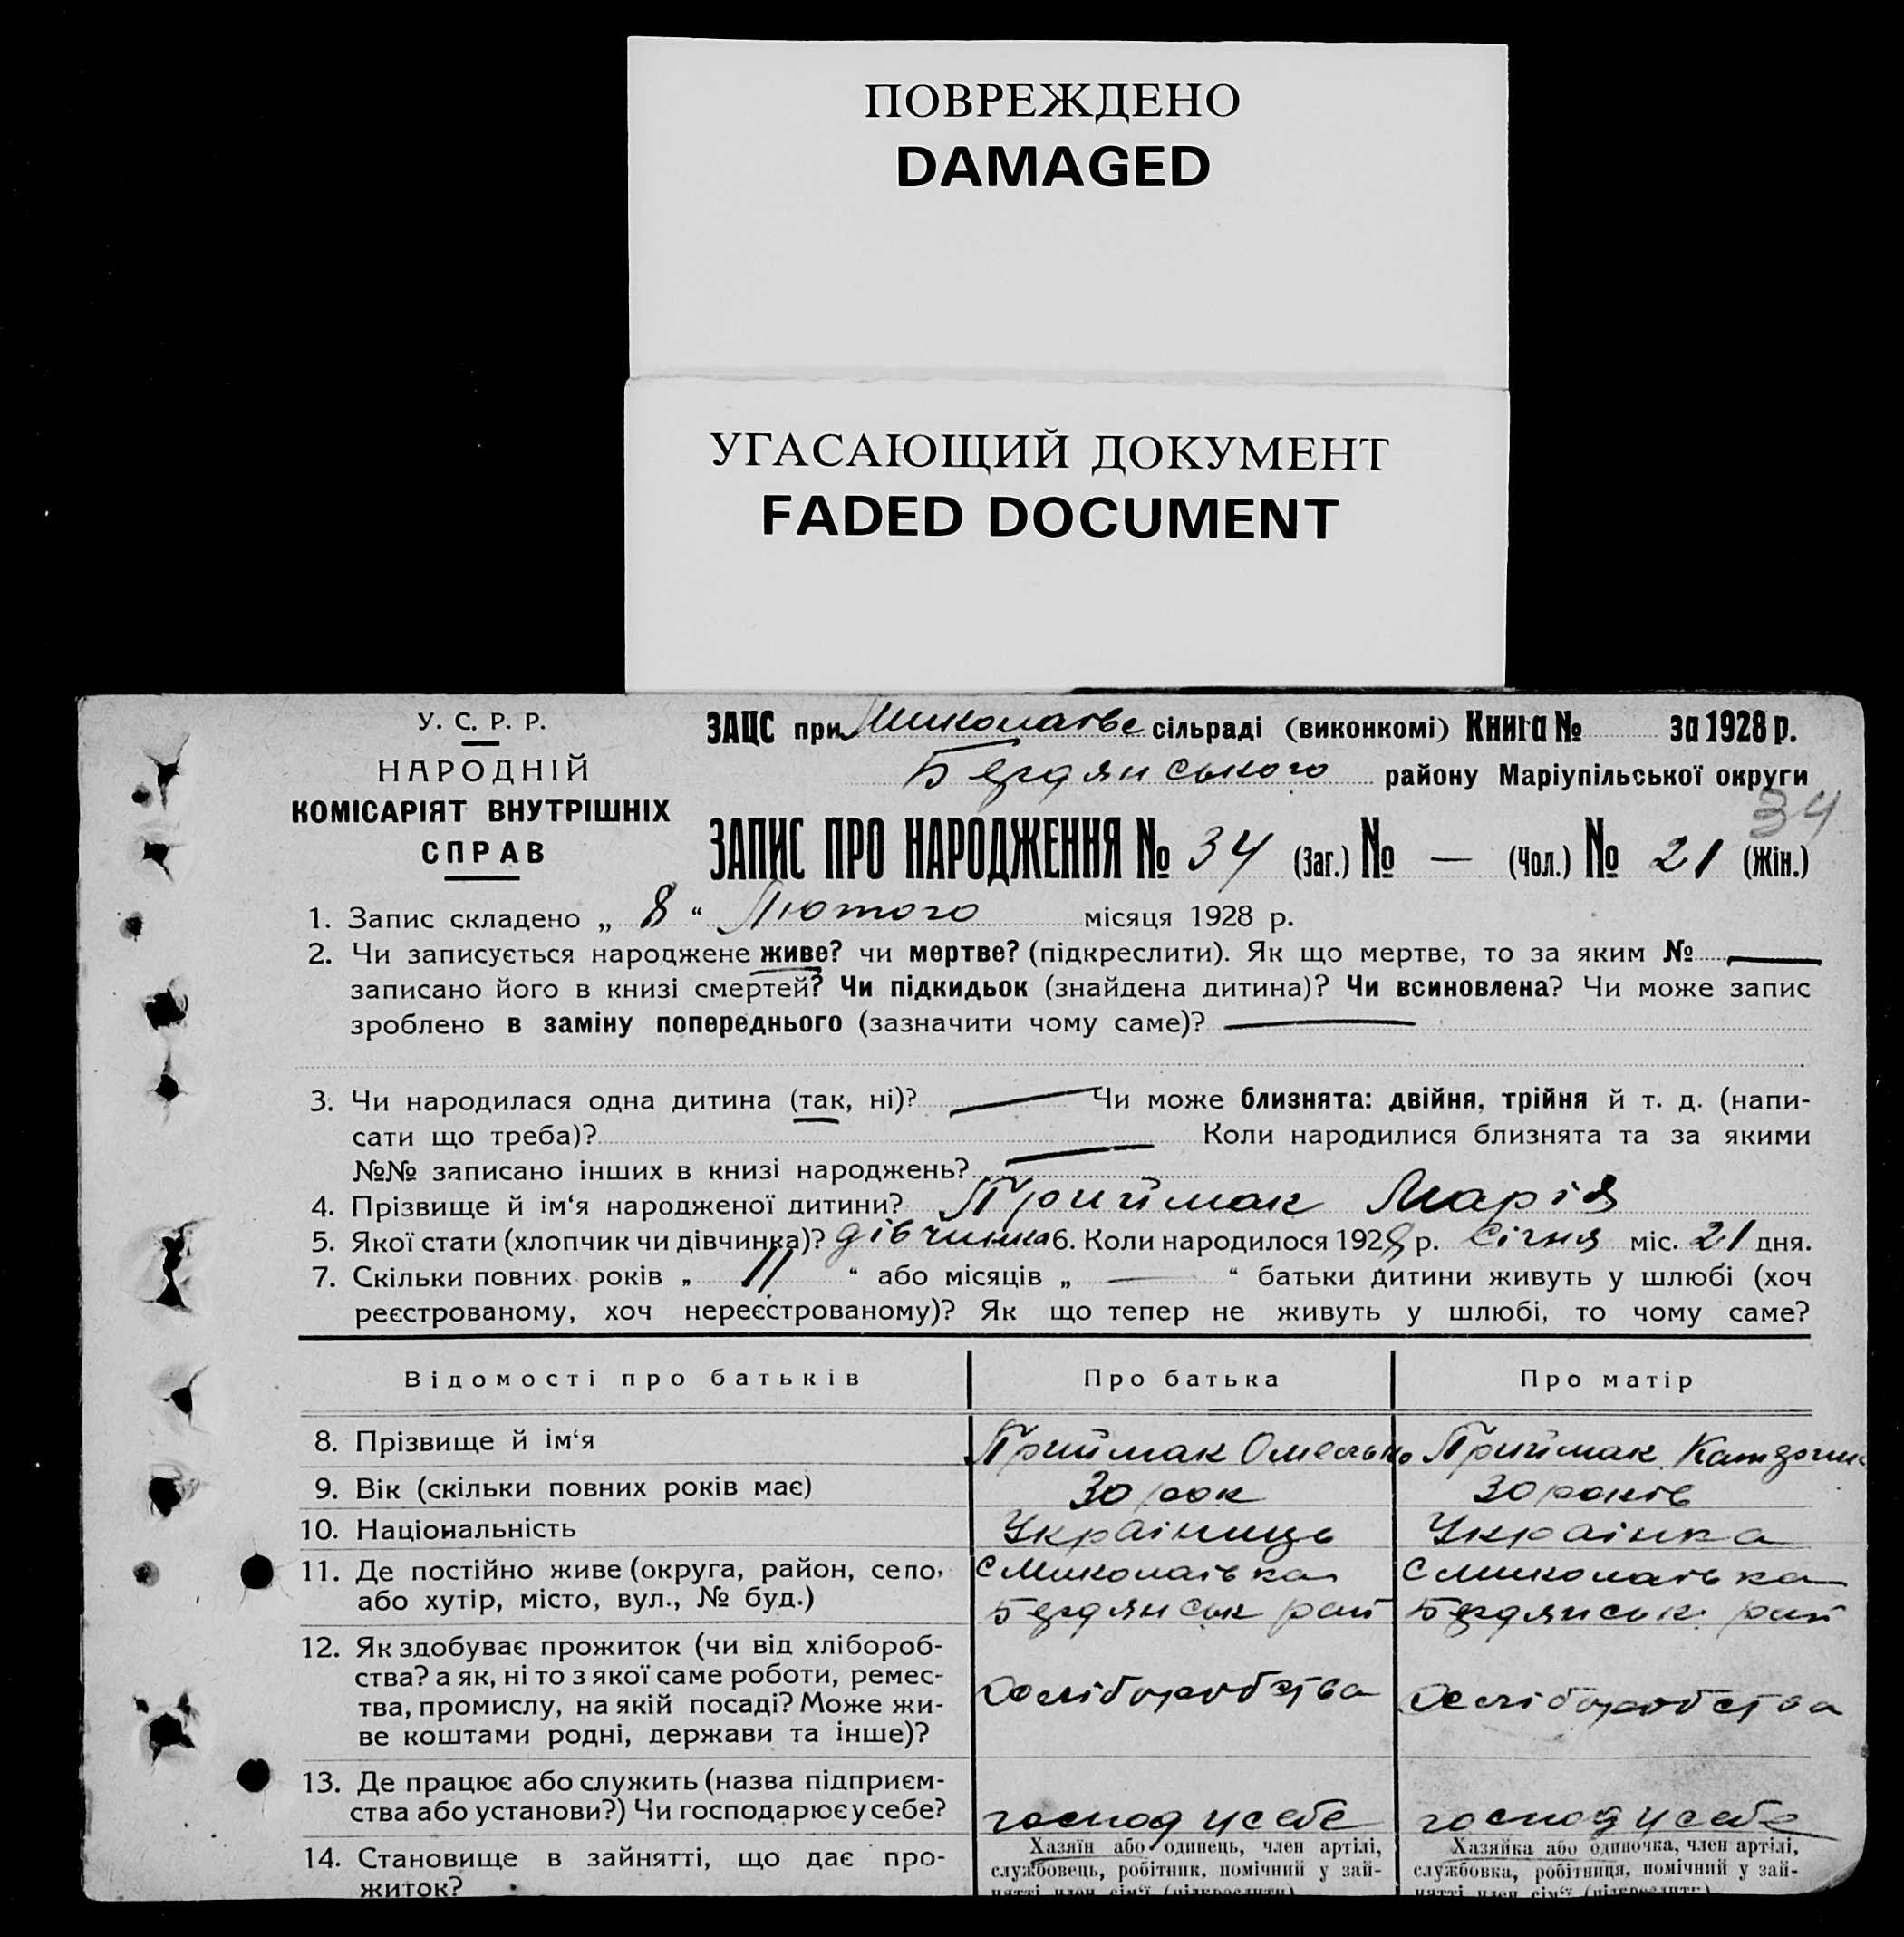 ПОВРЕЖДЕНО
DAMAGED
УГАСАЮЩИЙ ДОКУМЕНТ
FADED DOCUMENT
У. С. Р. Р.
НАРОДНІЙ
КОМІСАРІЯТ ВНУТРІШНІХ
СПРАВ
ЗАЦС при Миколаївс сільраді (виконкомі) Книга № за 1928 р.
Бердянського району Маріупільської округи
34
ЗАПИС ПРО НАРОДЖЕННЯ № 34 (Заг.) № — (Чол.) № 21 (Жін.)
1. Запис складено „ 8 “ Лютого місяця 1928 р.
2. Чи записується народжене живе? чи мертве? (підкреслити). Як що мертве, то за яким № —
записано його в книзі смертей? Чи підкидьок (знайдена дитина)? Чи всиновлена? Чи може запис
зроблено в заміну попереднього (зазначити чому саме)? —
3. Чи народилася одна дитина (так, ні)? — Чи може близнята: двійня, трійня й т. д. (напи-
сати що треба)? Коли народилися близнята та за якими
№№ записано інших в книзі народжень? —
4. Прізвище й ім‘я народженої дитини? Приймак Марія
5. Якої стати (хлопчик чи дівчинка)? дівчинка 6. Коли народилося 1928 р. січня міс. 21 дня.
7. Скільки повних років „ 11 “ або місяців „ — “ батьки дитини живуть у шлюбі (хоч
реєстрованому, хоч нереєстрованому)? Як що тепер не живуть у шлюбі, то чому саме?
Відомості про батьків Про батька Про матір
8. Прізвище й ім‘я Приймак Омелько Приймак Катерина
9. Вік (скільки повних років має) 30 рок 30 років
10. Національність Українець Українка
11. Де постійно живе (округа, район, село, С Миколаївка С Миколаївка
або хутір, місто, вул., № буд.) Бердянськ рай Бердянськ. рай
12. Як здобуває прожиток (чи від хлібороб-
ства? а як, ні то з якої саме роботи, ремес-
тва, промислу, на якій посаді? Може жи- Хліборобства Хліборобства
ве коштами родні, держави та інше)?
13. Де працює або служить (назва підприєм-
ства або установи?) Чи господарює у себе? господ у себе господ у себе
14. Становище в зайнятті, що дає про- Хазяїн або одинець, член артілі, Хазяйка або одиночка, член артілі,
житок? службовець, робітник, помічний у зай- службовка, робітниця, помічний у зай-
нятті член сім‘ї (підкреслити) нятті член сім‘ї (підкреслити)